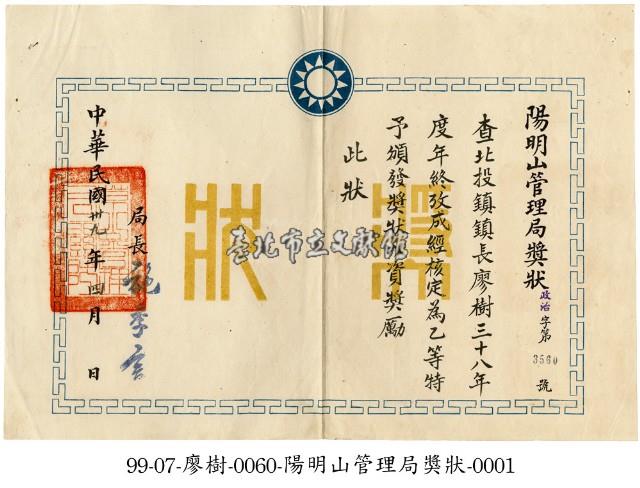 陽明山管理局獎狀 政治字第3560號
查北投鎮鎮長廖樹三十八年
度年終攷成經核定為乙等特
予頒發獎狀以資獎勵
此狀
局長
中華民國卅九年四月 日
獎狀
臺北市立文獻館
99-07-廖樹-0060-陽明山管理局獎狀-0001